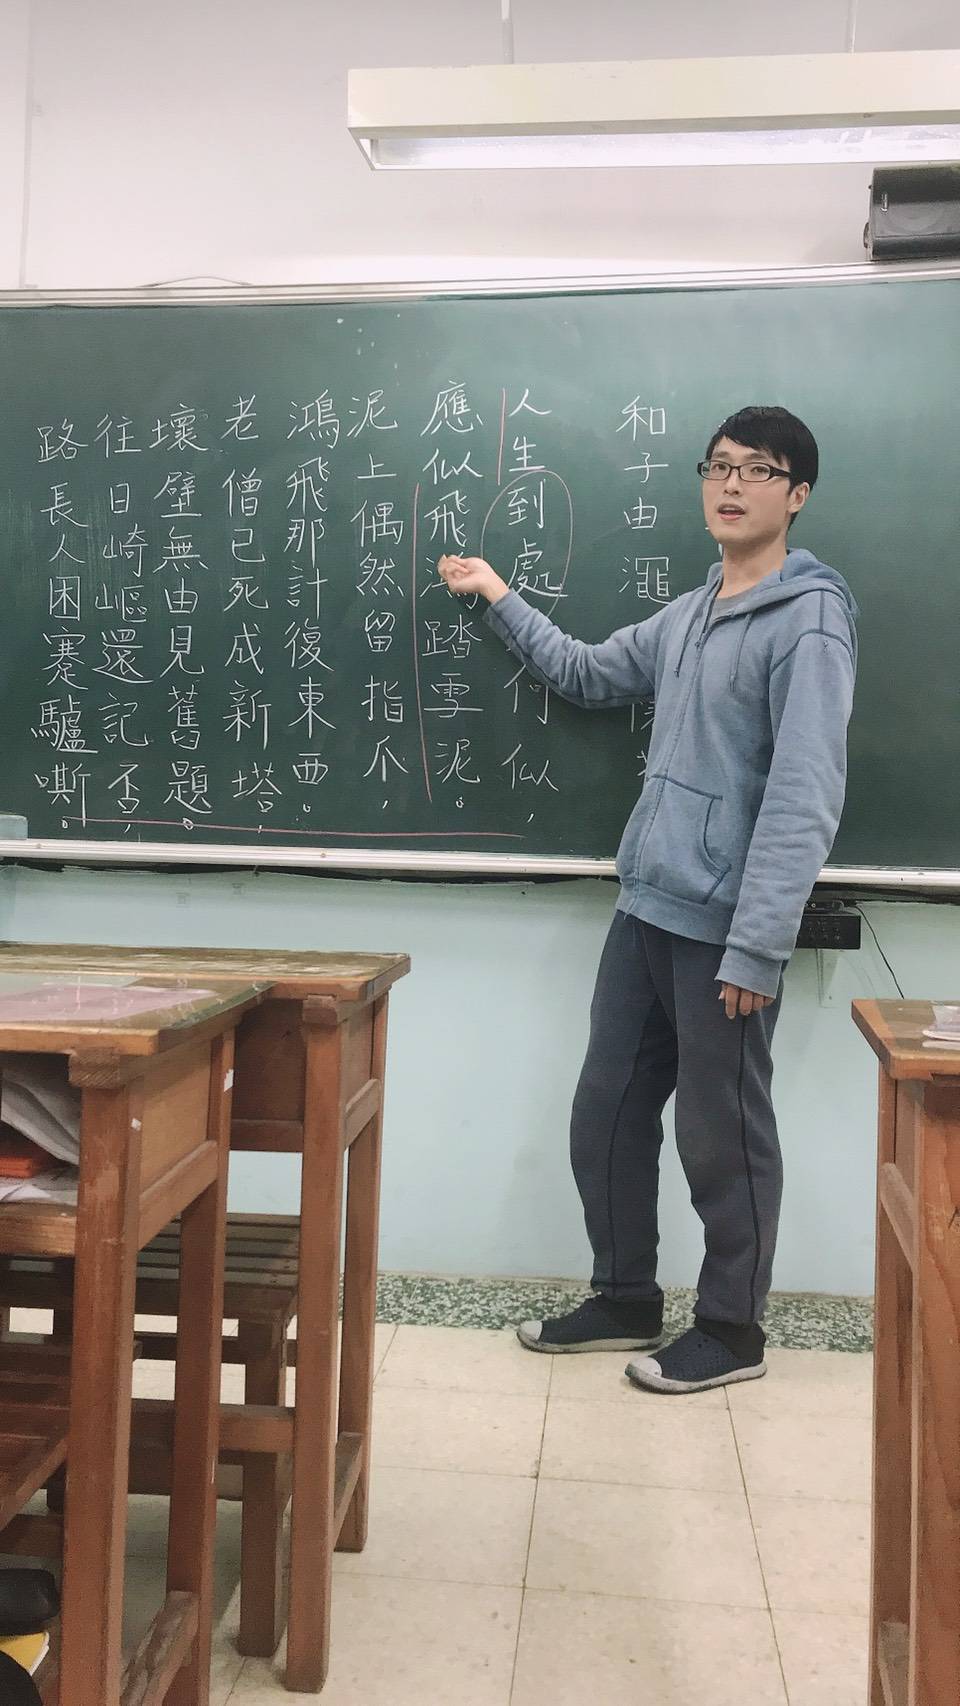 和子由澠
人生到處何似，
應似飛鴻踏雪泥。
泥上偶然留指爪，
鴻飛那計復東西。
老僧已死成新塔，
壞壁無由見舊題。
往日崎嶇還記否，
路長人困蹇驢嘶。